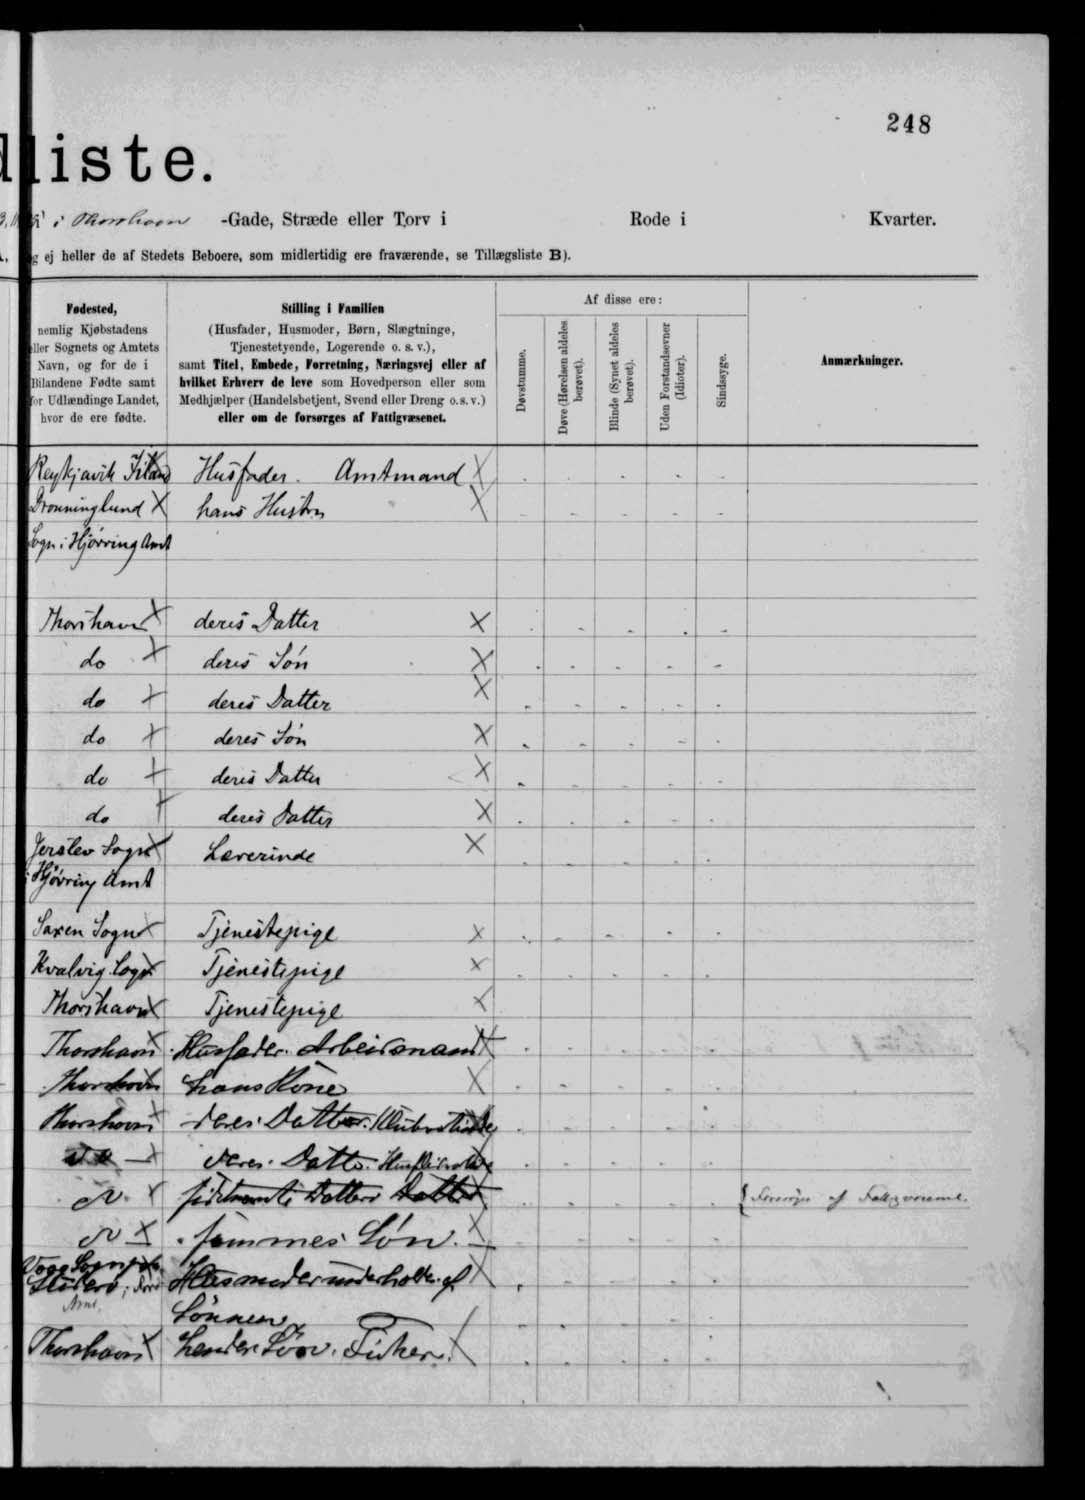 248
liste.
i Thorshavn -Gade, Stræde eller Torv i Rode i Kvarter.
g ej heller de af Stedets Beboere, som midlertidig ere fraværende, se Tillægsliste B).
Fødested,
nemlig Kjøbstadens
eller Sognets og Amtets
Navn, og for de i
Bilandene Fødte samt
for Udlændinge Landet,
hvor de ere fødte.
Stilling i Familien
(Husfader, Husmoder, Børn, Slægtninge,
Tjenestetyende, Logerende o. s. v.),
samt Titel, Embede, Forretning, Næringsvej eller af
hvilket Erhverv de leve som Hovedperson eller som
Medhjælper (Handelsbetjent, Svend eller Dreng o. s. v.)
eller om de forsørges af Fattigvæsenet.
Af disse ere:
Døvstumme.
Døve (Hørelsen aldeles
berøvet).
Blinde (Synet aldeles
berøvet).
Uden Forstandsevner
(Idioter).
Sindssyge.
Anmærkninger.
Reykjavik Island Husfader. Amtmand X
Dronninglund X hans Hustru X
Sogn i Hjørring Amt
Thorshavn X deres Datter X
do X deres Søn X
do X deres Datter X
do X deres Søn X
do X deres Datter X
do X deres Datter X
Jerslev Sogn X Lærerinde X
i Hjørring Amt
Saxen Sogn X Tjenestepige X
Kvalvig Sogn X Tjenestepige X
Thorshavn X Tjenestepige X
Thorshavn X Husfader. Arbeidsmand X
Thorshavn hans Kone X
Thorshavn X deres Datter.
do X deres Datter.
X Datter X
X Søn. X
Sogn Husmoder underholdes af X
Sønnen
Thorshavn X hendes Søn. Fisker. X